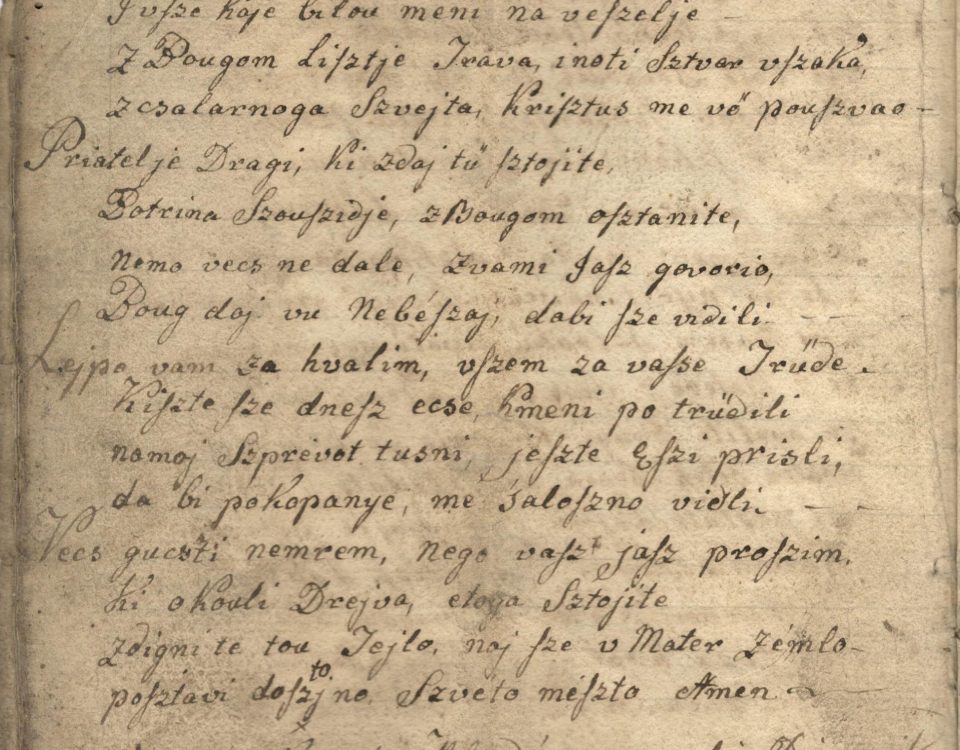 Ivsze koje bilou meni na veszelje –
Z Bougom Lisztje Trava, inoti Sztvar vszaka,
zcsalarnoga Szvejta, Krisztus me vö pouszvao –
Priatelje Dragi, ki zdaj tü sztojite,
Botrina Szouszidje, zBougom osztanite,
nemo vecs ne dale, zvami Jasz govorio,
Boug daj vu Nebészaj, dabi sze vidili – –
Lejpo vam za hvalim, vszem za vasse Trüde.
Kiszte sze dnesz ecse, kmeni po trüdili
namoj Szprevot tusni, jeszte Eszi prisli,
da bi pokopanye, me saloszno vidli. – –
Vecs gucsti nemrem, nego vasz jasz proszim,
Ki okouli Drejva, etoga Sztojite
zdigni te tou Tejlo, naj sze v Mater Zémlo –
posztavi dosztojno Szveto mészto Amen –